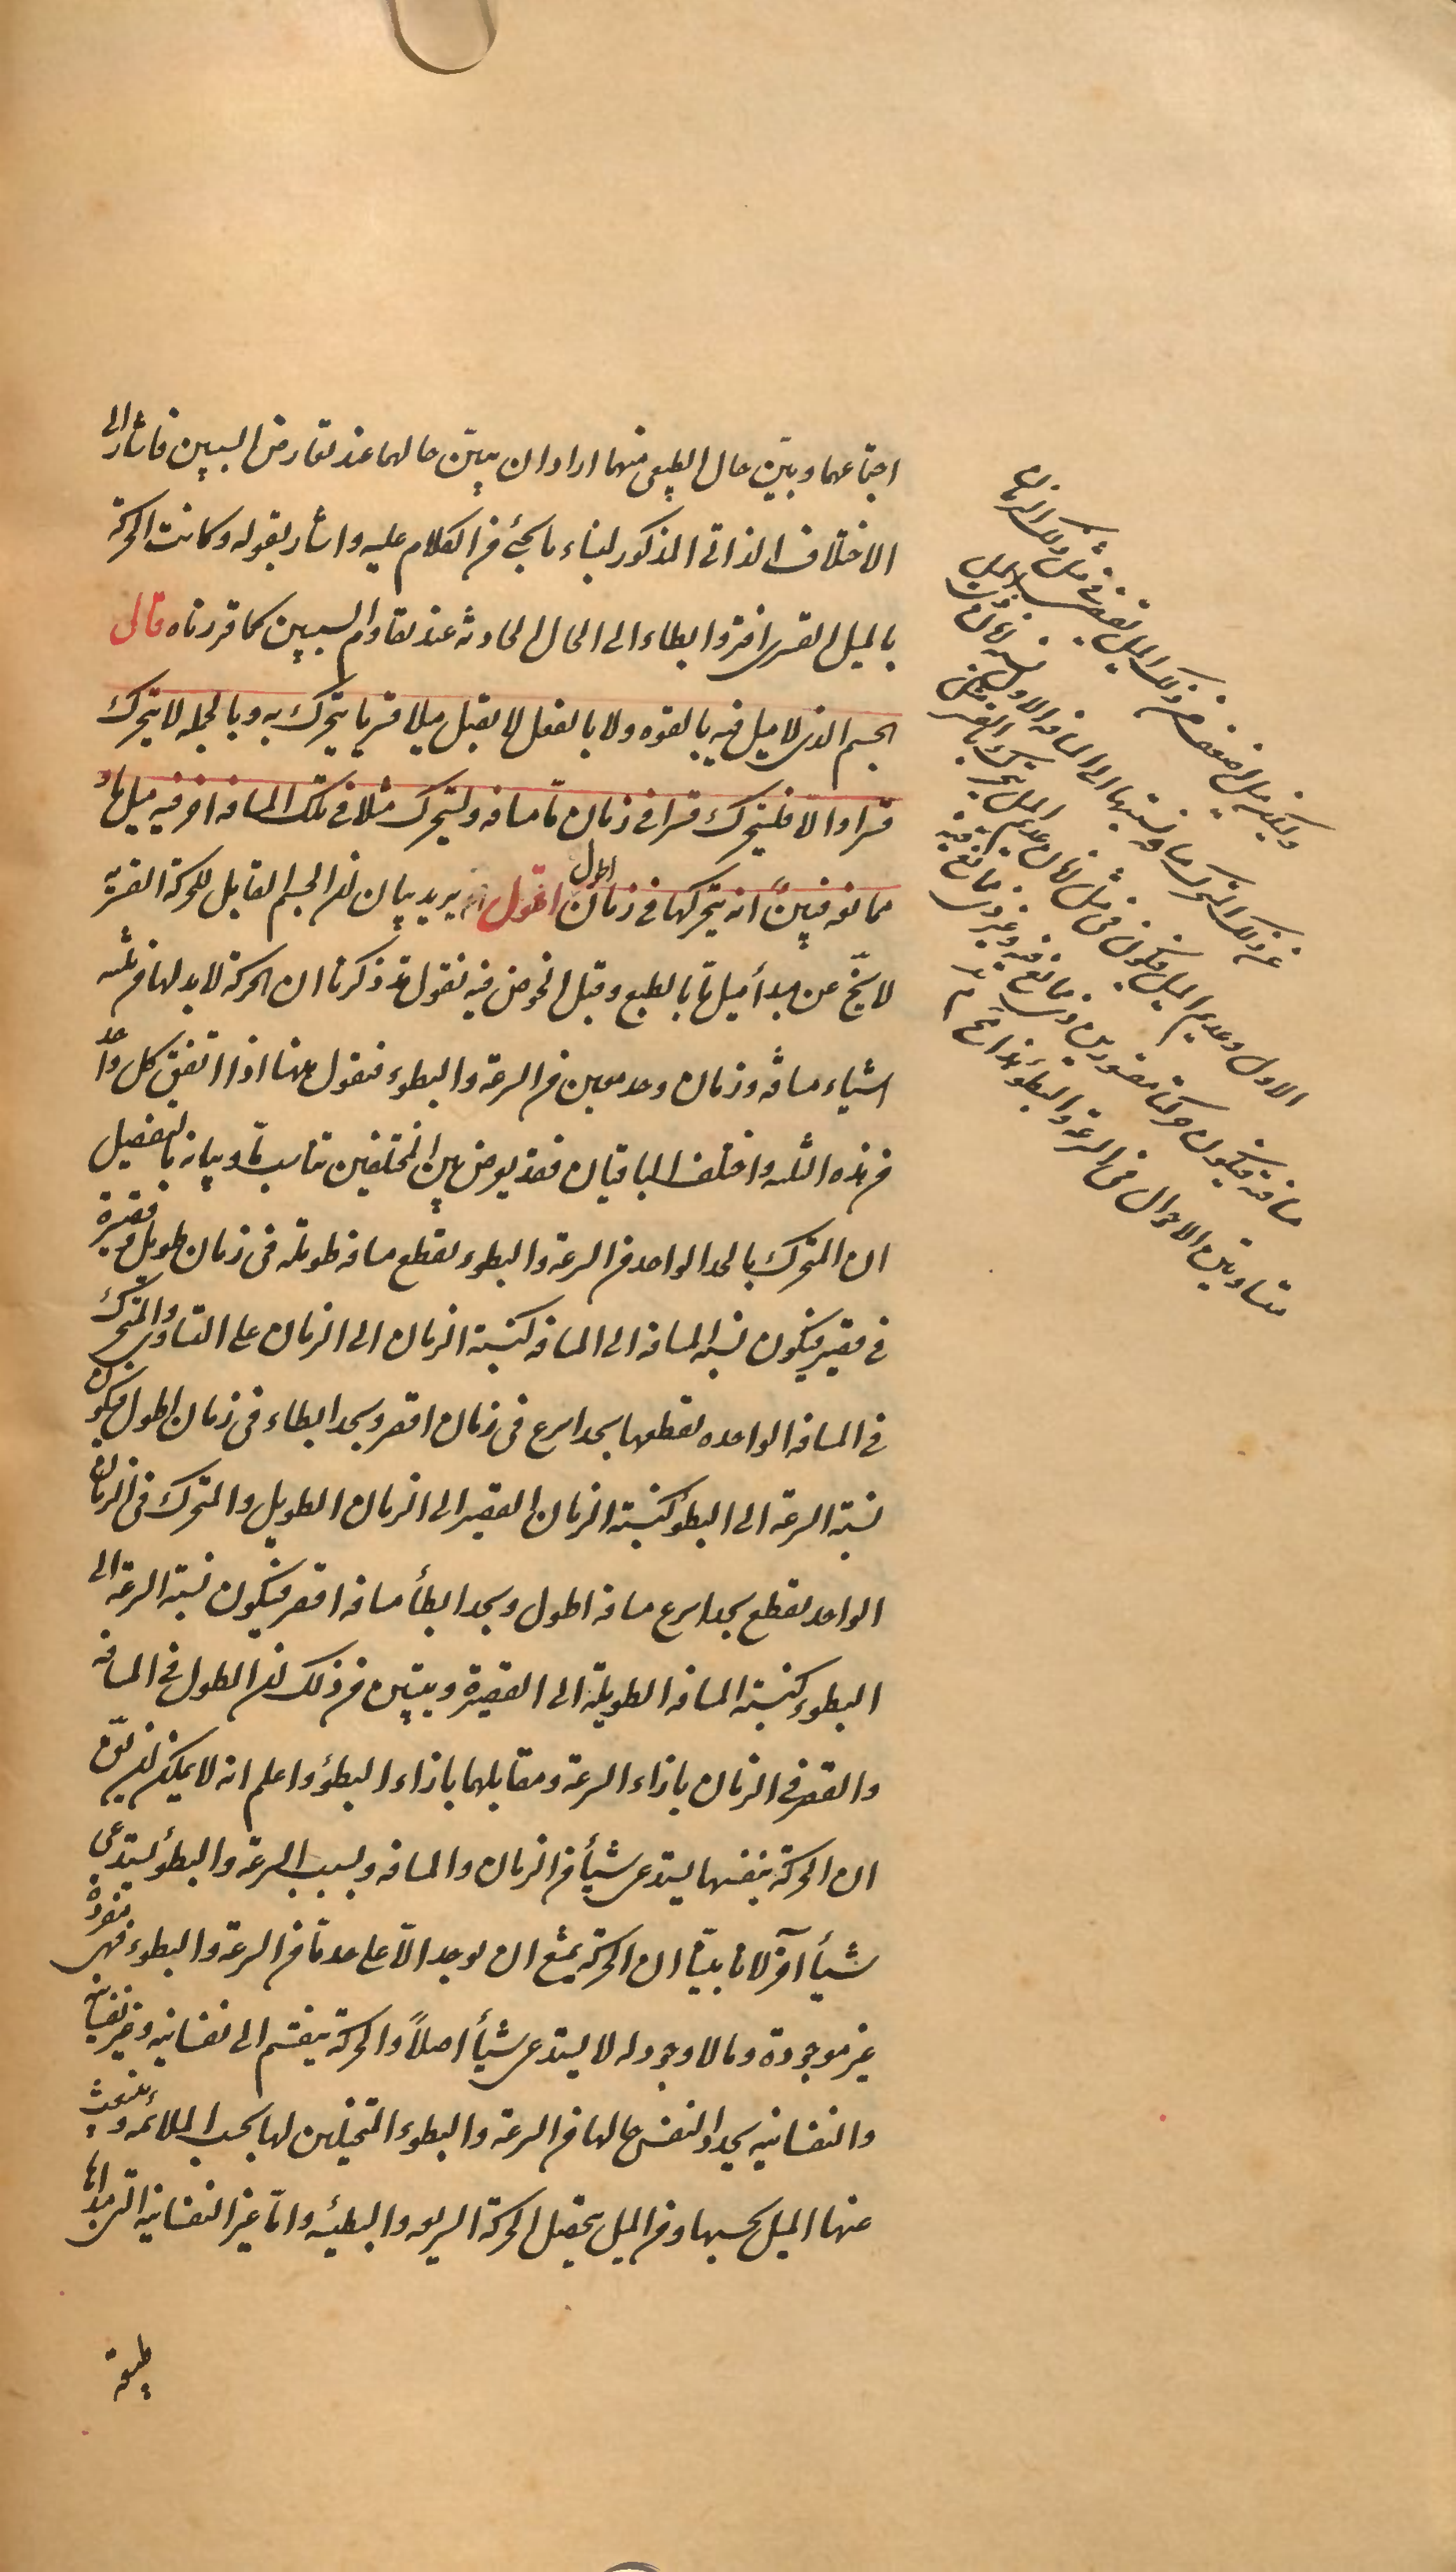 اجتماعهما وبيّن حال الطبيعى منهما اراد ان يبيّن حالهما عند تعارض السببين فاشار الى
الاختلاف الذاتى المذكور لبناء ما يجئ من الكلام عليه واشار بقوله وكانت الحركة
بالميل القسرى افتر وابطاء الى الحال الحادثه عند تقاوم السببين كما قررناه قال
الجسم الذى لا ميل فيه بالقوه ولا بالفعل لا يقبل ميلا قسريا يتحرك به وبالجمله لا يتحرك
قسرا والا فليتحرك قسرا فى زمان ما مسافه وليتحرك مثلا فى تلك المسافه اخر فيه ميل ما و
ممانعه فبيّن انه يتحركها فى زمان اطول اقول يريد بيان ان الجسم القابل للحركة القسريه
لا يخ عن مبدأ ميل ما بالطبع وقبل الخوض فيه نقول قد ذكرنا ان الحركة لا بد لها من ثلثه
اشياء مسافه وزمان وحد معين من السرعة والبطوء فنقول ههنا اذا اتفق كل واحد
من هذه الثلثه واختلف الباقيان فقد يعرض بين المختلفين تناسب ما وبيانه بالتفصيل
ان المتحرك بالحد الواحد من السرعة والبطوء يقطع مسافه طويله فى زمان طويل وقصيرة
فى قصير فيكون نسبة المسافه الى المسافه كنسبة الزمان الى الزمان على التساوى والمتحرك
فى المسافه الواحده يقطعها بحد اسرع فى زمان اقصر وبحد ابطاء فى زمان اطول فيكون
نسبة السرعة الى البطؤ كنسبة الزمان القصير الى الزمان الطويل والمتحرك فى الزمان
الواحد يقطع بحد اسرع مسافه اطول وبحد ابطأ مسافه اقصر فيكون نسبة السرعة الى
البطوء كنسبة المسافه الطويلة الى القصيرة ويتبين من ذلك ان الطول فى المسافه
والقصر فى الزمان بازاء السرعة ومقابلهما بازاء البطؤ واعلم انه لا يمكن ان يق
ان الحركة بنفسها يستدعى شيأ من الزمان والمسافه وبسبب السرعة والبطؤ يستدعى
شيأ آخر لانا بينّا ان الحركة يمتنع ان يوجد الا على حد ما من السرعة والبطوء فهى مفردة
غير موجودة وما لا وجود له لا يستدعى شيأ اصلاً والحركة ينقسم الى نفسانيه وغير نفسانيه
والنفسانيه يحدد النفس حالها من السرعة والبطوء المتخيلين لها بحسب الملائمه وينبعث
عنها الميل بحسبها ومن الميل يحصل الحركة السريعه والبطيئه واما غير النفسانيه التى مبدأها
طبيعة
وليكن ميل اضعف من ذلك الميل يقتضى فى مثل ذلك الزمان
عن ذلك المتحرك مسافه نسبتها الى المسافه الاولى نسبة زمان
الاول وعديم الميل فيكون فى مثل زمان عديم الميل يتحرك بالقسر مثل
مسافته فيكون حركتا مقسورين ذى ممانع فيه وغير ذى ممانع فيه
متساويتى الاحوال فى السرعة والبطؤ هذا مح